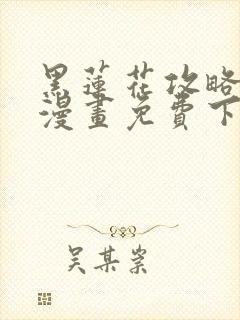 黑蓮花攻略
漫畫免費下
吴某某